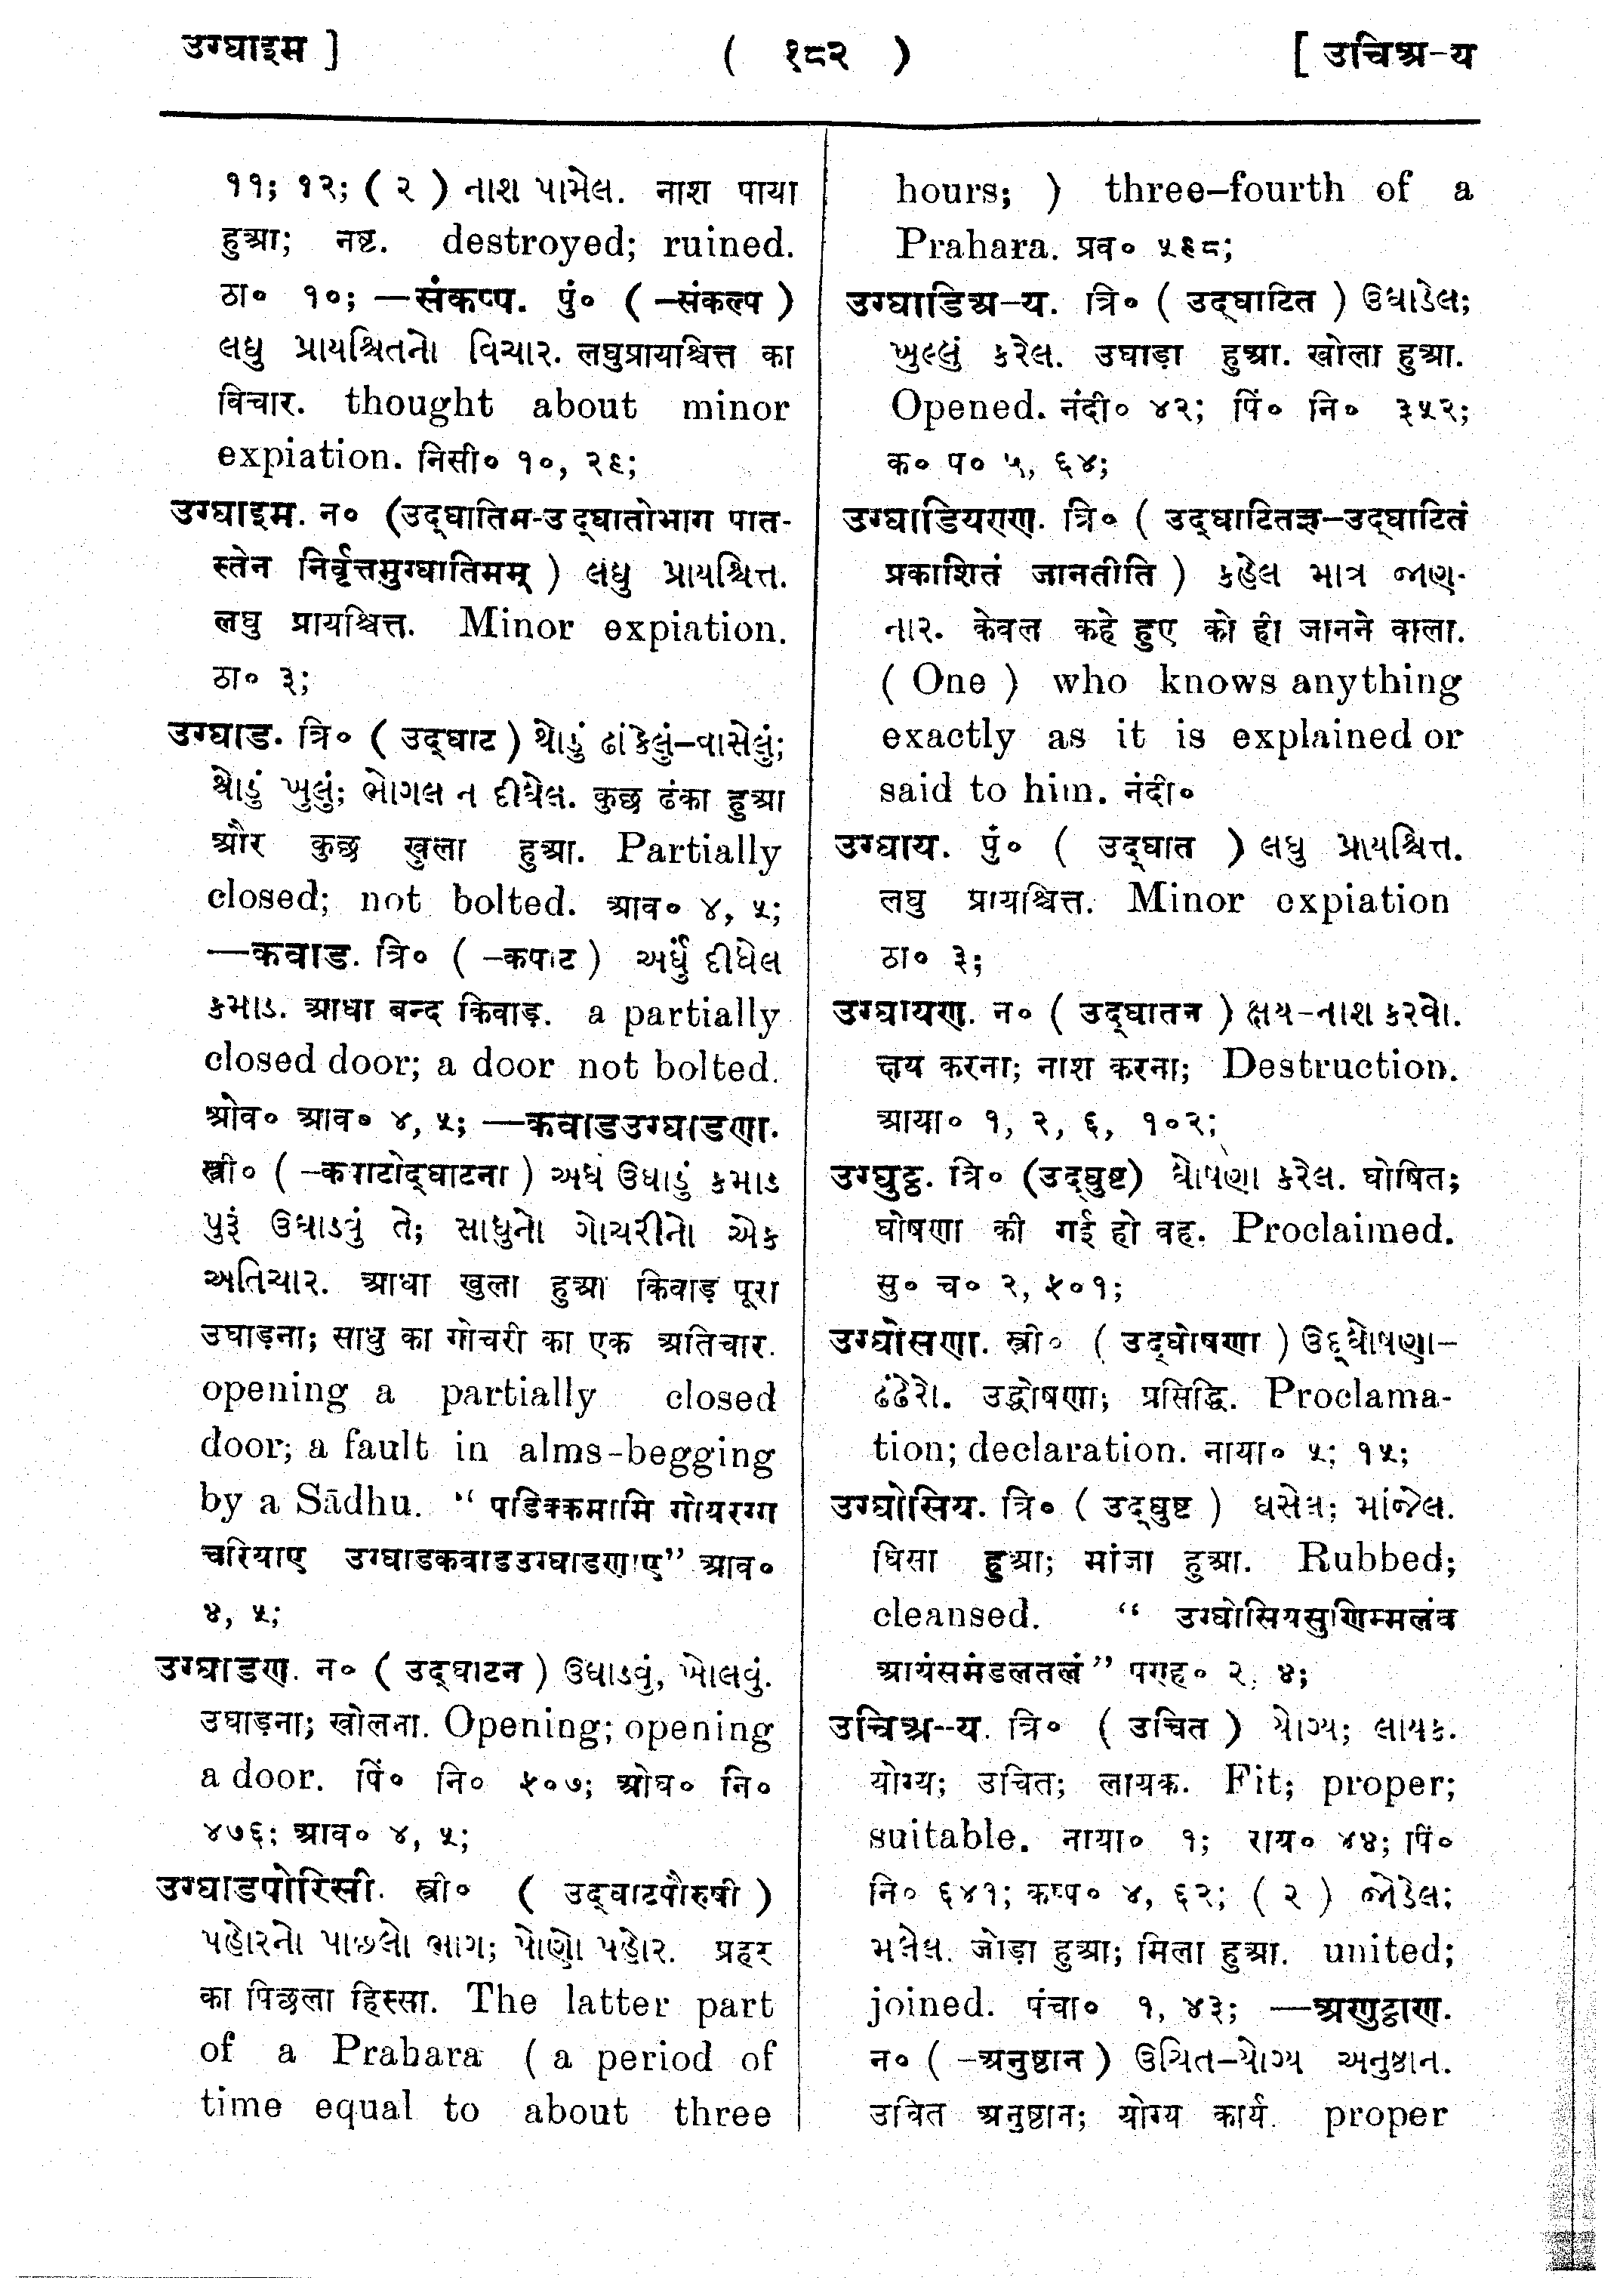 उग्घाइम ]
( १८२ )
[ उचिअ-य
११; १२; ( २ ) નાશ પામેલ. नाश पाया
हुआ; नष्ट. destroyed; ruined.
ठा० १०; —संकप्प. पुं० ( –संकल्प )
લઘુ પ્રાયશ્ચિતનો વિચાર. लघुप्रायश्चित्त का
विचार. thought about minor
expiation. निसी० १०, २९;
उग्घाइम. न० (उद्घातिम-उद्घातोभाग पात-
स्तेन निर्वृत्तमुग्घातिमम् ) લઘુ પ્રાયશ્ચિત્ત.
लघु प्रायश्चित्त. Minor expiation.
ठा० ३;
उग्घाड. त्रि० ( उद्घाट ) થોડું ઢાંકેલું–વાસેલું;
થોડું ખુલું; ભોગલ ન દીધેલ. कुछ ढंका हुआ
और कुछ खुला हुआ. Partially
closed; not bolted. आव० ४, ५;
—कवाड. त्रि० ( –कपाट ) અર્ધું દીધેલ
કમાડ. आधा बन्द किवाड़. a partially
closed door; a door not bolted.
ओव० आव० ४, ५; —कवाडउग्घाडणा.
स्त्री० ( –कपाटोद्घाटना ) અર્ધ ઉઘાડું કમાડ
પુરૂં ઉઘાડવું તે; સાધુનો ગોચરીનો એક
અતિચાર. आधा खुला हुआ किवाड़ पूरा
उघाड़ना; साधु का गोचरी का एक अतिचार.
opening a partially closed
door; a fault in alms-begging
by a Sādhu. “ पडिक्कमामि गोयरग्ग
चरियाए उग्घाडकवाडउग्घाडणाए” आव०
४, ५;
उग्घाडण. न० ( उद्घाटन ) ઉઘાડવું, ખોલવું.
उघाड़ना; खोलना. Opening; opening
a door. पिं० नि० ५०७; ओघ० नि०
४७६; आव० ४, ५;
उग्घाडपोरिसी. स्त्री० ( उद्घाटपौरुषी )
પહોરનો પાછલો ભાગ; પોણો પહોર. प्रहर
का पिछला हिस्सा. The latter part
of a Prahara ( a period of
time equal to about three
hours; ) three–fourth of a
Prahara. प्रव० ५९८;
उग्घाडिअ–य. त्रि० ( उद्घाटित ) ઉઘાડેલ;
ખુલ્લું કરેલ. उघाड़ा हुआ. खोला हुआ.
Opened. नंदी० ४२; पिं० नि० ३५२;
क० प० ५, ६४;
उग्घाडियण्ण. त्रि० ( उद्घाटितज्ञ–उद्घाटितं
प्रकाशितं जानतीति ) કહેલ માત્ર જાણ-
નાર. केवल कहे हुए को ही जानने वाला.
( One ) who knows anything
exactly as it is explained or
said to him. नंदी०
उग्घाय. पुं० ( उद्घात ) લઘુ પ્રાયશ્ચિત્ત.
लघु प्रायश्चित्त. Minor expiation
ठा० ३;
उग्घायण. न० ( उद्घातन ) ક્ષય–નાશ કરવો.
क्षय करना; नाश करना; Destruction.
आया० १, २, ६, १०२;
उग्घुट्ठ. त्रि० (उद्घुष्ट) ઘોષણા કરેલ. घोषित;
घोषणा की गई हो वह. Proclaimed.
सु० च० २, ५०१;
उग्घोसणा. स्त्री० ( उद्घोषणा ) ઉદ્ઘોષણા–
ઢંઢેરો. उद्घोषणा; प्रसिद्धि. Proclama-
tion; declaration. नाया० ५; १५;
उग्घोसिय. त्रि० ( उद्घुष्ट ) ઘસેલ; માંજેલ.
घिसा हुआ; मांजा हुआ. Rubbed;
cleansed. “ उग्घोसियसुणिम्मलंव
आयंसमंडलतलं” पराह० २, ४;
उचिअ–य. त्रि० ( उचित ) યોગ્ય; લાયક.
योग्य; उचित; लायक. Fit; proper;
suitable. नाया० १; राय० ४४; पिं०
नि० ६४१; कप्प० ४, ६२; ( २ ) જોડેલ;
મળેલ. जोड़ा हुआ; मिला हुआ. united;
joined. पंचा० १, ४३; —अणुट्ठाण.
न० ( –अनुष्ठान ) ઉચિત–યોગ્ય અનુષ્ઠાન.
उचित अनुष्ठान; योग्य कार्य. proper